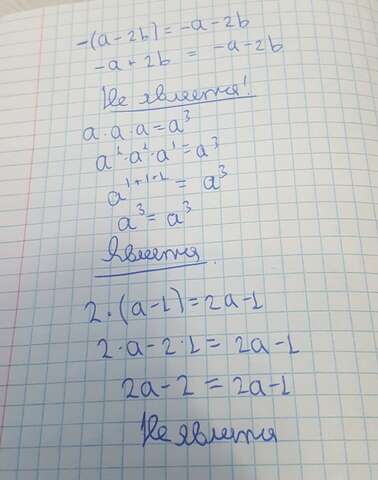 -(a-2b)=-a-2b
-a+2b = -a-2b
Не является!
a·a·a=a³
a¹·a¹·a¹=a³
a¹⁺¹⁺¹ = a³
a³=a³
Является.
2·(a-1)=2a-1
2·a-2·1=2a-1
2a-2=2a-1
Не является